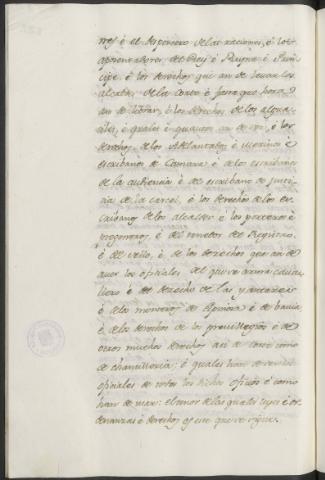 res è el despensero de las raciones, è los
aposentadores del Rey è Reyna è Prin-
cipe è los derechos que an de levar los
alcaldes de la Corte è fasta que hora
an de librar, è los derechos de los algua-
ciles, è quales è quantos an de ser, è los
derechos de los Adelantados, è merinos è
escribanos de Camara è de los escribanos
de la audiencia è del escribano de justi-
cia de la carcel, è los derechos de los es-
cribanos de los alcaldes è los porteros è
pregoneros, è del mayordomo del Registro,
è del sello, è de los derechos que an de
aver los oficiales del que se armare cava-
llero è del derecho de las yantares
è de los monteros de Espinosa è de bavia,
è de los derechos de los previllegios è de
otros muchos derechos asi de corte como
de chancilleria, è quales han de ser los
oficiales de todos los dichos oficios è como
han de usar: el tenor de las quales leyes è or-
denanzas è derechos es este que se sigue.